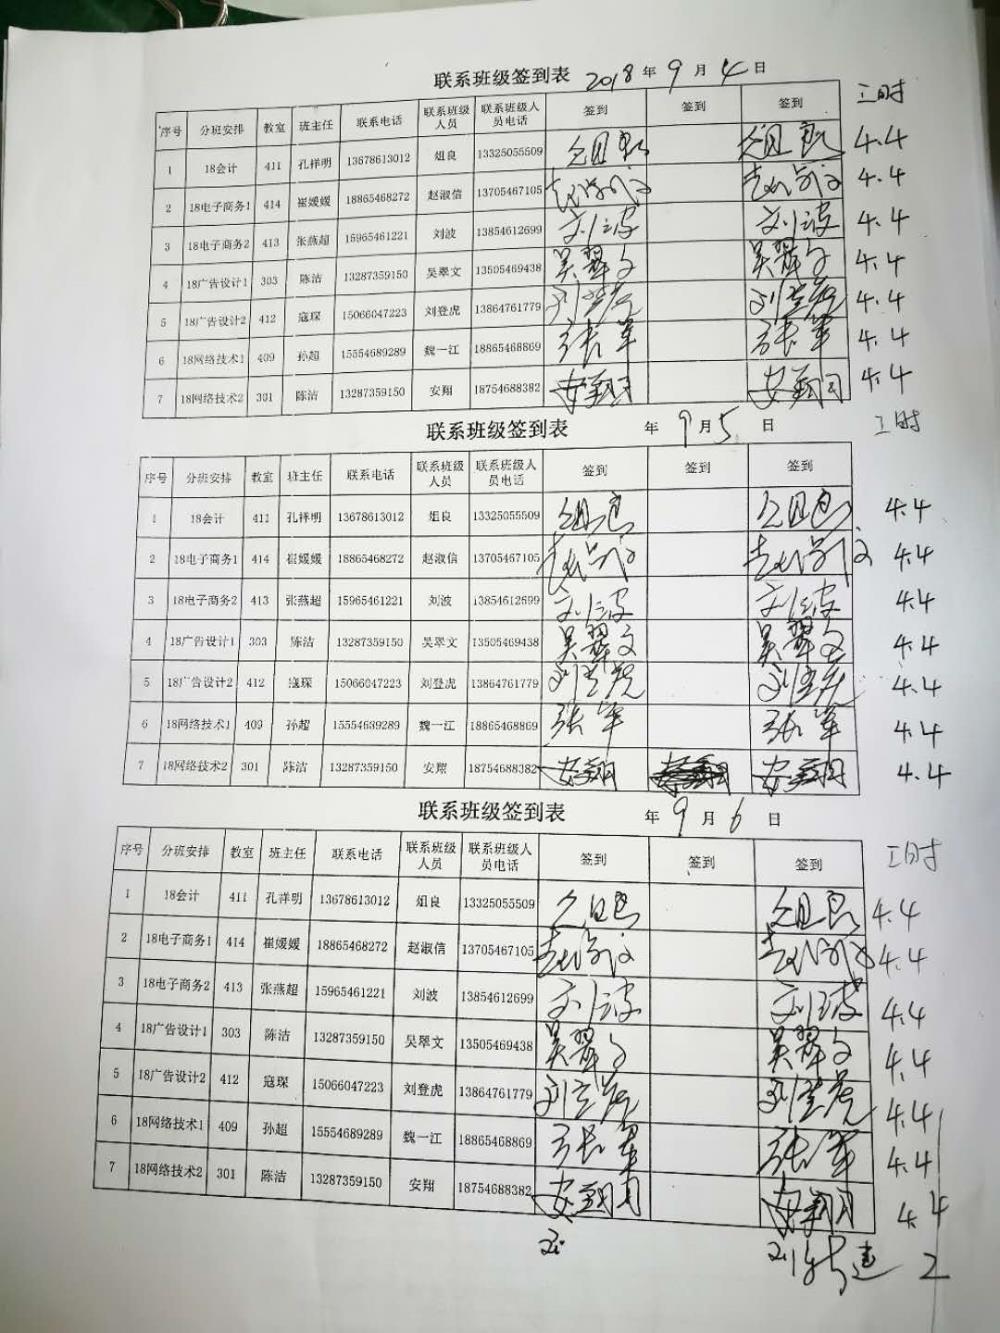 联系班级签到表 2018年9月4日
工时
序号 分班安排 教室 班主任 联系电话 联系班级人员 联系班级人员电话 签到 签到 签到
1 18会计 411 孔祥明 13678613012 俎良 13325055509 俎良 俎良 4.4
2 18电子商务1 414 崔媛媛 18865468272 赵淑信 13705467105 赵淑信 赵淑信 4.4
3 18电子商务2 413 张燕超 15965461221 刘波 13854612699 刘波 刘波 4.4
4 18广告设计1 303 陈洁 13287359150 吴翠文 13505469438 吴翠文 吴翠文 4.4
5 18广告设计2 412 寇琛 15066047223 刘登虎 13864761779 刘登虎 刘登虎 4.4
6 18网络技术1 409 孙超 15554689289 魏一江 18865468869 张军 张军 4.4
7 18网络技术2 301 陈洁 13287359150 安翔 18754688382 安翔 安翔 4.4
联系班级签到表 年9月5日
工时
序号 分班安排 教室 班主任 联系电话 联系班级人员 联系班级人员电话 签到 签到 签到
1 18会计 411 孔祥明 13678613012 俎良 13325055509 俎良 俎良 4.4
2 18电子商务1 414 崔媛媛 18865468272 赵淑信 13705467105 赵淑信 赵淑信 4.4
3 18电子商务2 413 张燕超 15965461221 刘波 13854612699 刘波 刘波 4.4
4 18广告设计1 303 陈洁 13287359150 吴翠文 13505469438 吴翠文 吴翠文 4.4
5 18广告设计2 412 寇琛 15066047223 刘登虎 13864761779 刘登虎 刘登虎 4.4
6 18网络技术1 409 孙超 15554689289 魏一江 18865468869 张军 张军 4.4
7 18网络技术2 301 陈洁 13287359150 安翔 18754688382 安翔 安翔 4.4
联系班级签到表 年9月6日
工时
序号 分班安排 教室 班主任 联系电话 联系班级人员 联系班级人员电话 签到 签到 签到
1 18会计 411 孔祥明 13678613012 俎良 13325055509 俎良 俎良 4.4
2 18电子商务1 414 崔媛媛 18865468272 赵淑信 13705467105 赵淑信 赵淑信 4.4
3 18电子商务2 413 张燕超 15965461221 刘波 13854612699 刘波 刘波 4.4
4 18广告设计1 303 陈洁 13287359150 吴翠文 13505469438 吴翠文 吴翠文 4.4
5 18广告设计2 412 寇琛 15066047223 刘登虎 13864761779 刘登虎 刘登虎 4.4
6 18网络技术1 409 孙超 15554689289 魏一江 18865468869 张军 张军 4.4
7 18网络技术2 301 陈洁 13287359150 安翔 18754688382 安翔 安翔 4.4
2